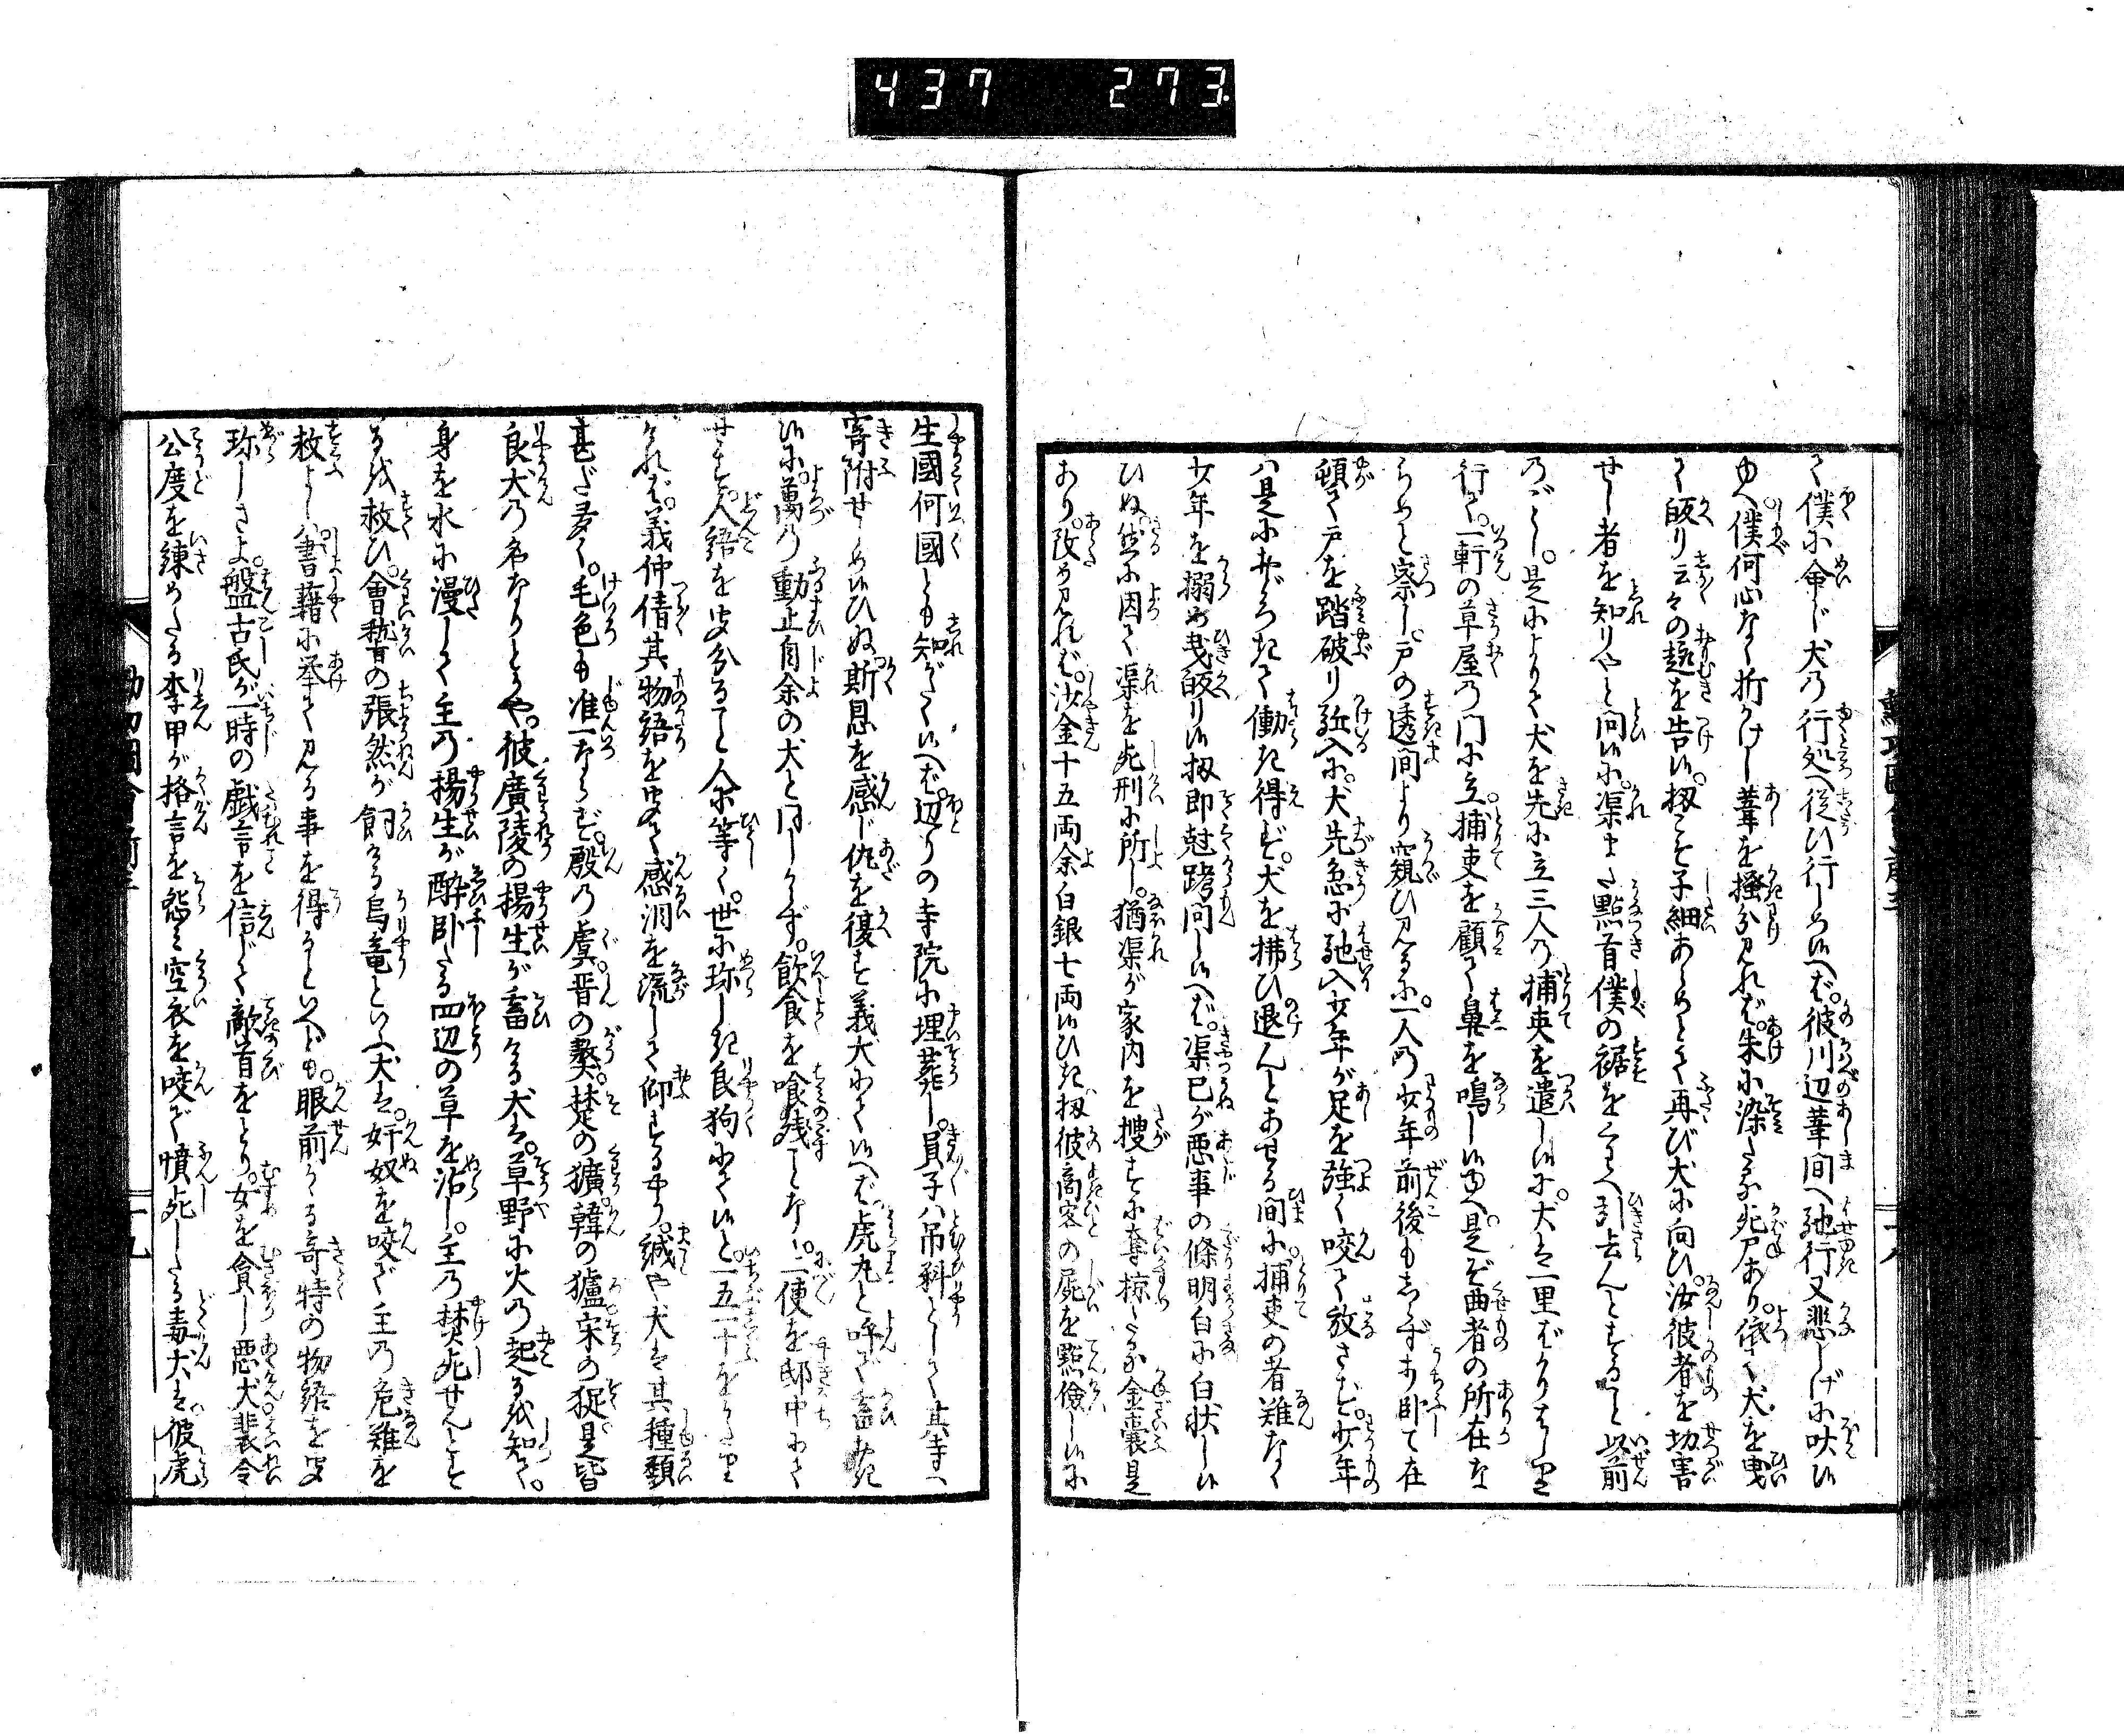 437 273
て僕に命じ犬の行処へ従ひ行しめいへば彼川辺葦間へ馳行又悲しげに吠い
ゆへ僕何心なく折かけし葦を掻分見れば朱に染たる死尸あり依て犬を曳
て皈り云々の趣を告い扨こそ子細あらめとて再び犬に向ひ汝彼者を切害
せし者を知りやと問いに渠また點首僕の裾をくわへ引去んとすること以前
のごとし是によりて犬を先に立三人の捕吏を遣しいに犬は一里ばかりはしり
行て一軒の草屋の門に立捕吏を顧て鼻を鳴しいゆへ是ぞ曲者の所在な
らめと察し戸の透間より窺ひ見るに一人の少年前後もしらず打臥て在
頓て戸を踏破り駈入に犬先急に馳入少年が足を強く咬て放さず少年
ハ是におどろきて働き得ず犬を拂ひ退んとあせる間に捕吏の者難なく
少年を搦め曳皈りい扨即尅踌問しいへば渠已が悪事の條明白に白状しい
ひぬ然に因て渠を死刑に所し猶渠が家内を捜すに奪掠たる金嚢是
あり改め見れば沙金十五両余白銀七両いひき扨彼商客の屍を點儉しいに
生國何國とも知がたくいへば辺りの寺院に埋葬し員子ハ吊料として其寺へ
寄附せしめいひぬ斯恩を感じ仇を復す義犬にていへば虎丸と呼で畜おき
いに萬の動止自余の犬と同じからず飲食を喰残ことなし一便を邸中にて
せず人語を聞分ること人に等く世に珍しき良狗にていと一五一十をかたり
ければ義仲倩其物語を聞て感涙を流して仰するやう誠や犬は其種類
甚だ多く毛色も准一ならず殷の虞晋の獒楚の獷韓の獹宋の捉是皆
良犬の名なりとかや彼廣陵の揚生が畜ける犬は草野に火の起るを知て
身を水に漫して主の揚生が醉臥たる四辺の草を沾し主の焚死せんとす
るを救ひ會稽の張然が飼ける烏竜といふ犬は奸奴を咬で主の危難を
救よし書籍に挙て見る事を得るといへども眼前かゝる奇特の物語を聞
珎しさよ盤古氏が一時の戯言を信じて敵首をとり女を貪し悪犬裴令
公度を練めたる李甲が格言を怨み空衣を咬で憤死したる毒犬は彼虎